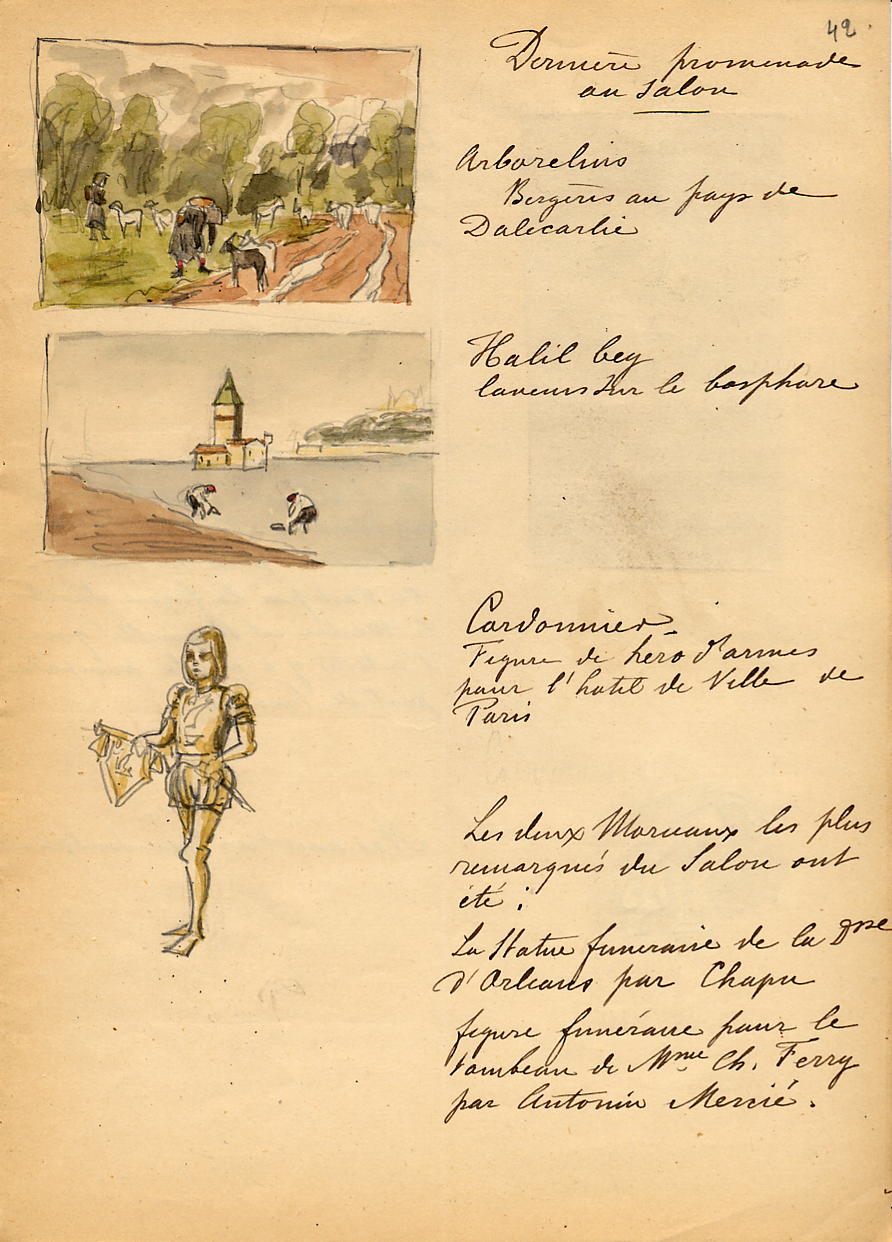 42.
Dernière promenade
au Salon
Arborelius
Bergères au pays de
Dalécarlie
Halil bey
laveurs sur le bosphore
Cordonnier
Figure de héro d'armes
pour l'hotel de Ville de
Paris
Les deux Morceaux les plus
remarqués du Salon ont
été :
La Statue funeraire de la Dsse
d'Orleans par Chapu
figure funéraire pour le
tombeau de Mme Ch. Ferry
par Antonin Mercié.